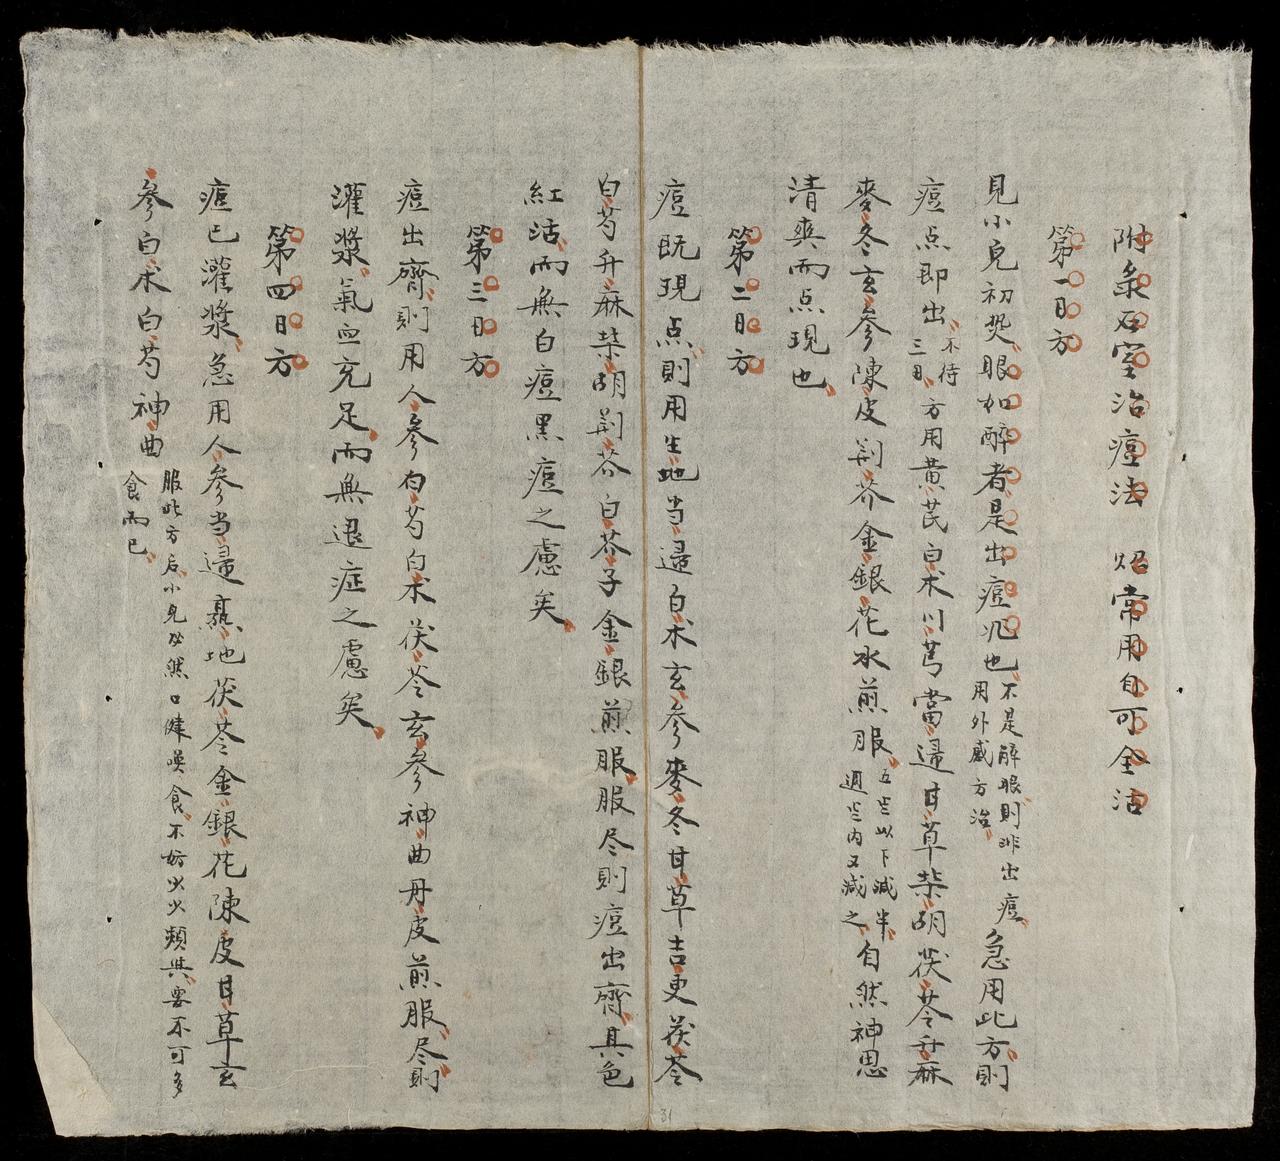 附录石室治痘法 照常用自可全活
第一日方
見小兒初热眼如醉者是出痘兆也不是醉眼則非出痘用外感方治急用此方則
痘点即出不待三日方用黄芪白术川芎當歸甘草柴胡茯苓升麻
麥冬玄參陳皮荆芥金銀花水煎服五岁以下減半週岁内又減之自然神思
清爽而点現也
第二日方
痘既現点則用生地当歸白术玄參麥冬甘草吉更茯苓
白芍升麻柴胡荆芥白芥子金銀煎服服尽則痘出齊具色
紅活而無白痘黑痘之慮矣
第三日方
痘出齊則用人參白芍白术茯苓玄參神曲丹皮煎服尽則
灌漿氣血充足而無退症之慮矣
第四日方
痘已灌漿急用人參当歸熟地茯苓金銀花陳皮甘草玄
參白术白芍神曲服此方后小兒必然口健喚食不妨少少頻與要不可多食而已
31